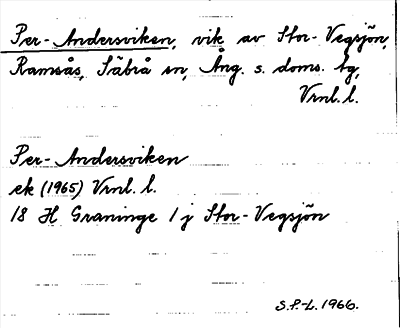 Per-Andersviken, vik av Stor-Vegsjön,
Ramsås, Säbrå sn, Ång. s. doms. tg,
Vrnl. l.
Per-Andersviken
ek (1965) Vrnl. l.
18 H Graninge 1 j Stor-Vegsjön
S.P.-L. 1966.